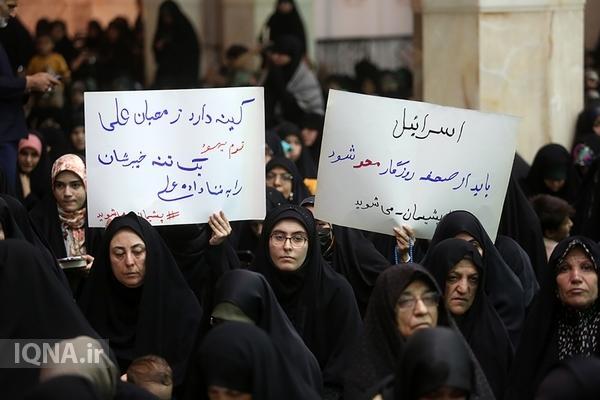 کینه دارد ز محبان علی
قوم یهود
یک تنه خیبرشان
را به فنا داده علی
#پشیمان
اسرائیل
باید از صفحه روزگار محو شود
#پشیمان_می شوید
IQNA.ir